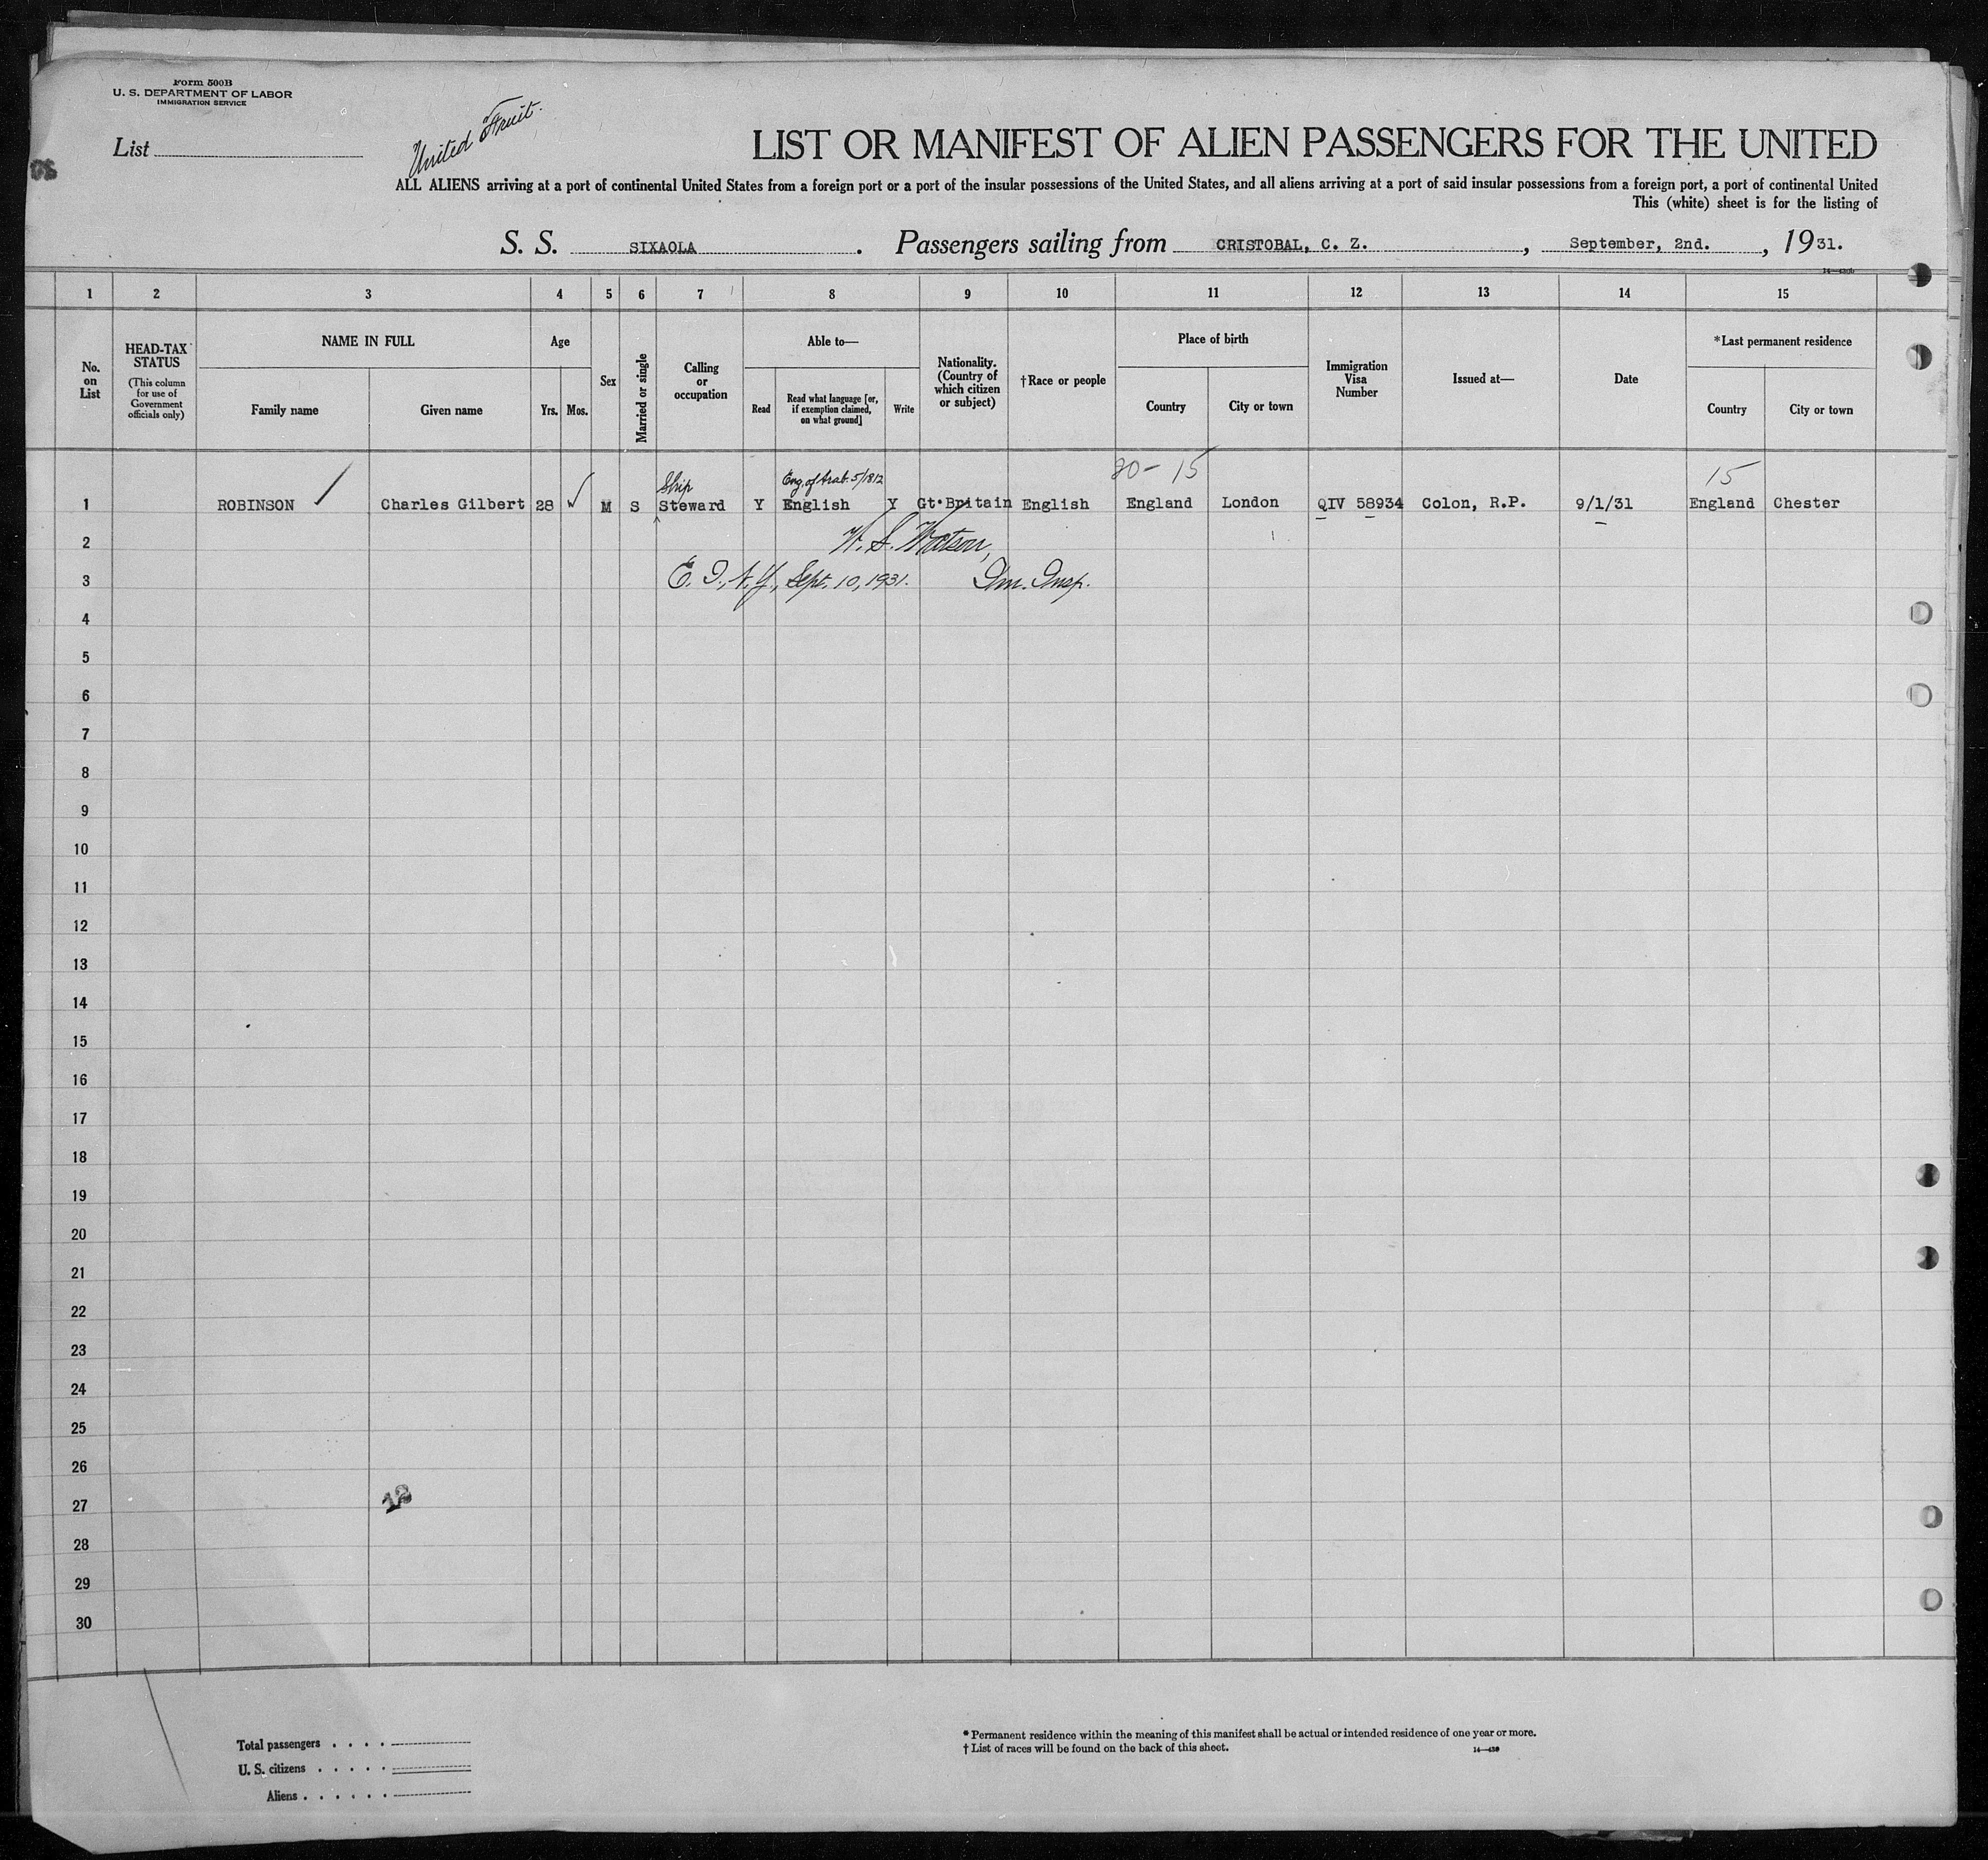 Form 500B
U. S. DEPARTMENT OF LABOR
IMMIGRATION SERVICE
List
United Fruit.
LIST OR MANIFEST OF ALIEN PASSENGERS FOR THE UNITED
ALL ALIENS arriving at a port of continental United States from a foreign port or a port of the insular possessions of the United States, and all aliens arriving at a port of said insular possessions from a foreign port, a port of continental United
This (white) sheet is for the listing of
S. S. SIXAOLA. Passengers sailing from CRISTOBAL, C. Z., September, 2nd., 1931.
1 2 3 4 5 6 7 8 9 10 11 12 13 14 15
No. on List
HEAD-TAX STATUS
(This column for use of Government officials only)
NAME IN FULL
Family name
Given name
Age
Yrs. Mos.
Sex
Married or single
Calling or occupation
Able to—
Read
Read what language [or, if exemption claimed, on what ground]
Write
Nationality. (Country of which citizen or subject)
†Race or people
Place of birth
Country
City or town
Immigration Visa Number
Issued at—
Date
*Last permanent residence
Country
City or town
20- 15
15
Ship
Eng. of Arab. 5/1812
1 ROBINSON Charles Gilbert 28 M S Steward Y English Y Gt.Britain English England London QIV 58934 Colon, R.P. 9/1/31 England Chester
2
W. S. Watson,
3
E. I., N.Y., Sept. 10, 1931. Im. Insp.
4
5
6
7
8
9
10
11
12
13
14
15
16
17
18
19
20
21
22
23
24
25
26
27
28
29
30
Total passengers . . . .
U. S. citizens . . . . .
Aliens . . . . . .
* Permanent residence within the meaning of this manifest shall be actual or intended residence of one year or more.
† List of races will be found on the back of this sheet.